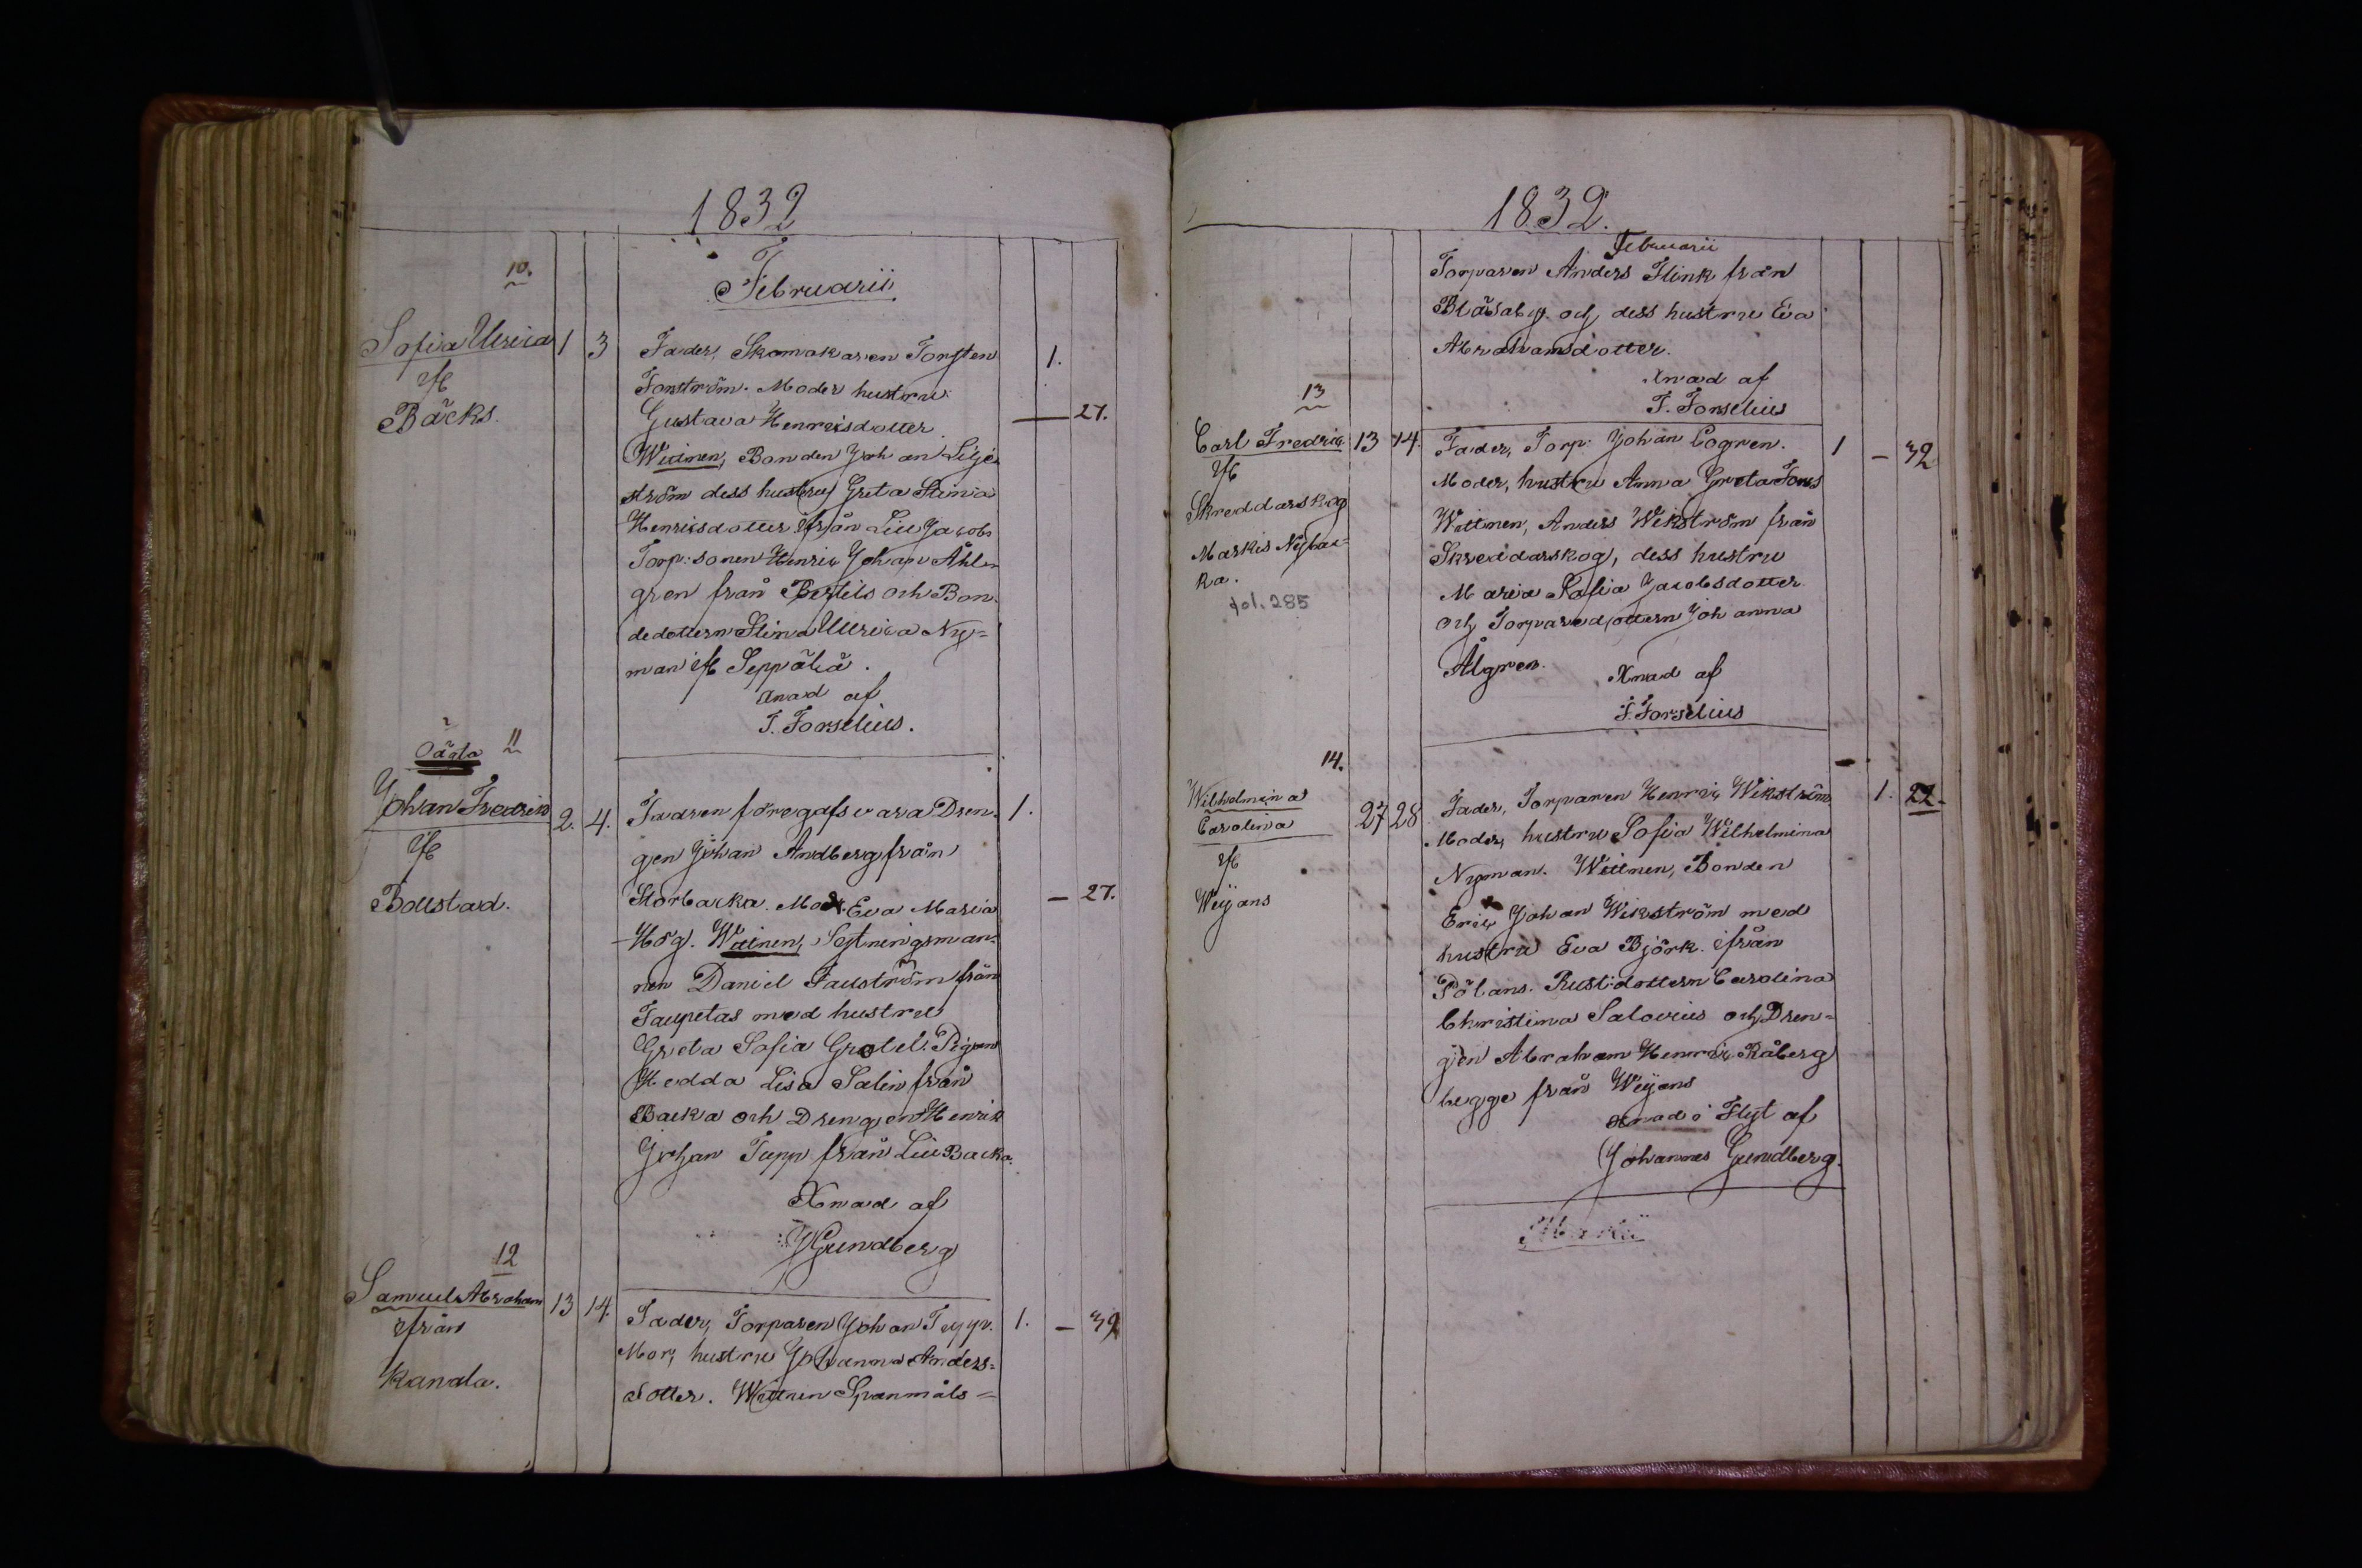 1832
Februarii
10.
Sofia Ulrica 1 3 Fader, Skomakaren Torsten 1.
ifr Forström. Moder hustru
Bäcks. Gustava Henricsdotter — 27.
Wittnen, Bonden Johan Lilje
ström dess hustru Greta Stina
Henricsdotter ifrån Lill Jacobs
Torp: sonen Henric Johan Åhl-
gren från Bertils och Bon-
dedottern Stina Ulrica Ny=
man ifr Seppälä.
Xnad af
F. Forselius.
Oägta 11
Johan Fredrick 2. 4. Fadren föregafs vara Dren- 1.
ifr gen Johan Andberg från
Bollstad. Storbacka. Mod. Eva Maria — 27.
Hög. Wittnen, Sejtningsman-
nen Daniel Fauström från
Faupetas med hustru
Greta Sofia Grotel. Pigan
Hedda Lisa Salin från
Backa och Drengen Henrik
Johan Tupp från Lill Backa.
Xnad af
J Gundberg
12
Samuel Abraham 13 14. Fader, Torparen Johan Tupp. 1. — 32
ifrån Mor, hustru Johanna Anders=
Kanala. dotter. Wittnen Spanmåls=
1832.
Februarii
Torparen Anders Flink från
Blåbabg. och dess hustru Eva
Abrahamsdotter.
Xnad af
F. Forselius
13
Carl Fredric 13 14. Fader, Torp. Johan Cogren. 1 — 32
ifr Moder, hustru Anna Greta Fors
Skreddarskog Wittnen, Anders Wikström från
Markis Nybac= Skreddarskog, dess hustru
ka. Maria Sofia Jacobsdotter
fol. 285 och Torparedottern Johanna
Ålgren. Xnad af
F. Forselius
14.
Wilhelmina 27 28 Fader, Torparen Henric Wikström 1. 22.
Carolina Moder, hustru Sofia Wilhelmina
ifr Nyman. Wittnen, Bonden
Weijans Eric Johan Wikström med
hustru Eva Björk ifrån
Pölans. Rust:dottern Carolina
Christina Salovius och Dren=
gen Abraham Henric Råberg
begge från Weijans
Xnad i Flyt af
Johannes Gundberg.
Martii